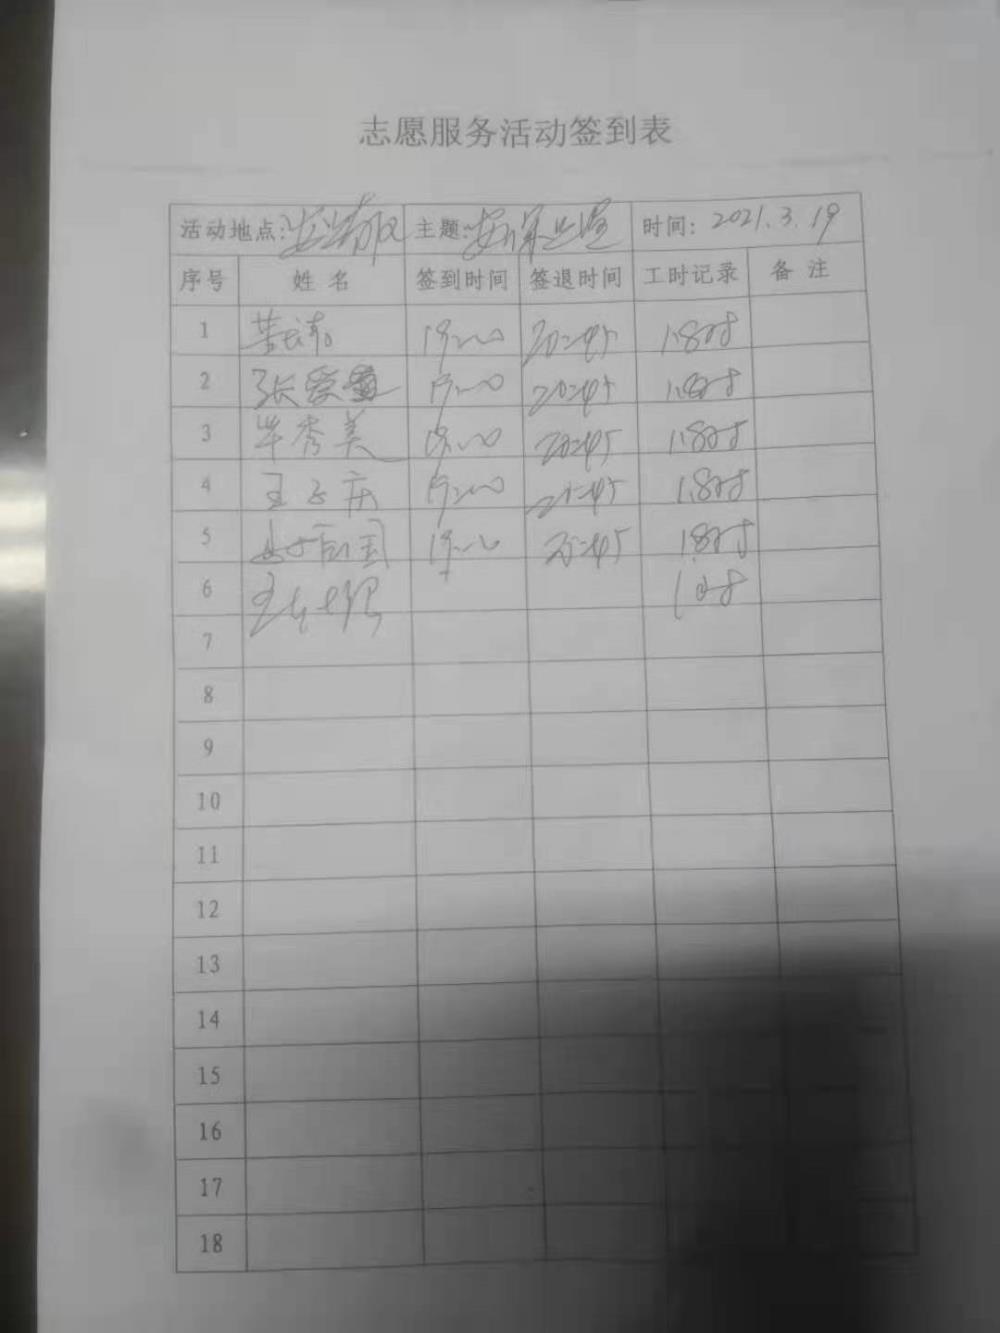 志愿服务活动签到表
活动地点: 主题: 时间: 2021.3.19
序号 姓名 签到时间 签退时间 工时记录 备注
1 19:00 20:45 1.8时
2 张爱 19:00 20:45 1.8时
3 牛秀美 19:00 20:45 1.8时
4 王 庆 19:00 20:45 1.8时
5 国 19:00 20:45 1.8时
6 王
7
8
9
10
11
12
13
14
15
16
17
18